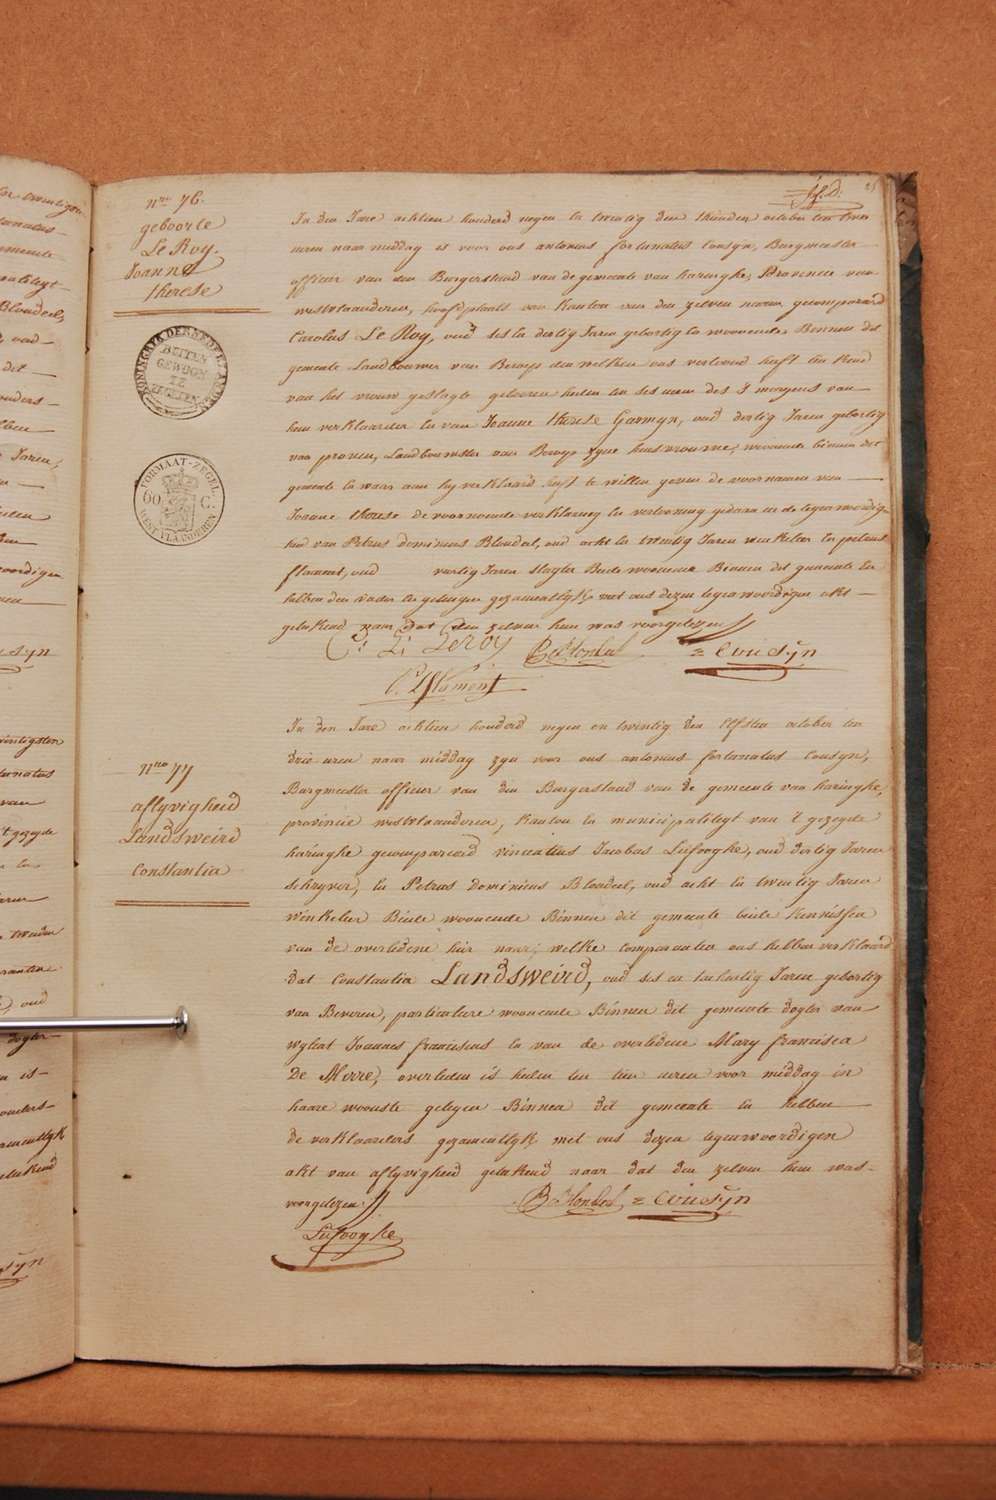 25
nro 76.
geboorte
Le Roy
Joanna
therese
KONINGRYK DER NEDERLANDEN
BUITEN
GEWOON
TE
ZEGELEN
FORMAAT-ZEGEL
60 C.
WEST VLAANDEREN
In den Jare achtien honderd negen en twintig den thienden october ten twee
uren naar middag is voor ons antonius fortunatus Cousÿn, Burgmeester
officier van den Burgerstand van de gemeente van haringhe, Provincie van
westvlaanderen, hoofdplaats van Kanton van den zelven naam gecompareerd
Carolus Le Roy, oud ses en dertig Jaren geboortig en woonende Binnen dit
gemeente Landbouwer van Beroep den welken ons vertoond heeft een kind
van het vrouw geslagte geboren heden ten ses uren des s'morgens van
hem verklaarder en van Joanne therese Garmyn, oud dertig Jaren geboortig
van proven, Landbouwster van Beroep zyne huisvrouwe, woonende binnen dit
gemeente en waar aan hy verklaard heeft te willen geven de voornamen van
Joanne therese de voornoemde verklaring en vertooning gedaan in de tegenwoordig-
heid van Petrus dominicus Blondeel, oud acht en twintig Jaren winkelier en
flament, oud veertig Jaren slagter Beide woonende Binnen dit gemeente en
hebben den vader en getuigen gezamentlyk met ons dezen tegenwoordigen akt
geteekend naar dat den zelven hun was voorgelezen
C: L: LeRoy Blondeel = Cousÿn
flament
In den Jare achtien honderd negen en twintig den Elfsten october ten
drie uren naar middag zyn voor ons antonius fortunatus Cousyn,
Burgmeester officier van den Burgerstand van de gemeente van haringhe,
provincie westvlaanderen, Kanton en municipaliteyt van 't gezeyde
nro 77
aflyvigheid
Landsweird
Constantia
haringhe gecompareerd vincentius Jacobus Lufooghe, oud dertig Jaren
schryver, en Petrus dominicus Blondeel, oud acht en twintig Jaren
winkelier Beide woonende Binnen dit gemeente beide Kennissen
van de overledene hier naar, welke comparanten ons hebben verklaard
dat Constantia Landsweird, oud ses en tachentig Jaren geboortig
van Beveren, particuliere woonende Binnen dit gemeente dogter van
wylent Joannes franciscus en van de overledene Mary francisca
De Merre, overleden is heden ten tien uren voor middag in
haare wooniste gelegen Binnen dit gemeente en hebben
de verklaarders gezamentlyk met ons dezen tegenwoordigen
akt van aflyvigheid geteekend naar dat den zelven hun was
voorgelezen
Blondeel = Cousÿn
Lufooghe